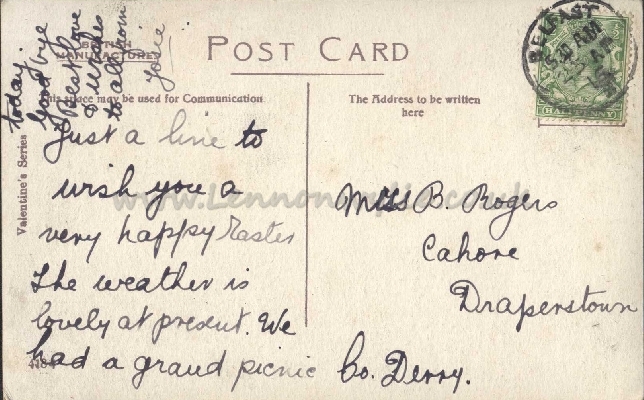 POST CARD
BRITISH
MANUFACTURE
This space may be used for Communication
The Address to be written
here
Valentine's Series
BELFAST
5.30 AM
HALFPENNY
Just a line to
wish you a
very happy Easter
The weather is
lovely at present. We
had a grand picnic
today.
Good bye
Best love
& wishes
to all from
Josie
Miss B. Rogers
Cahore
Draperstown
Co. Derry.